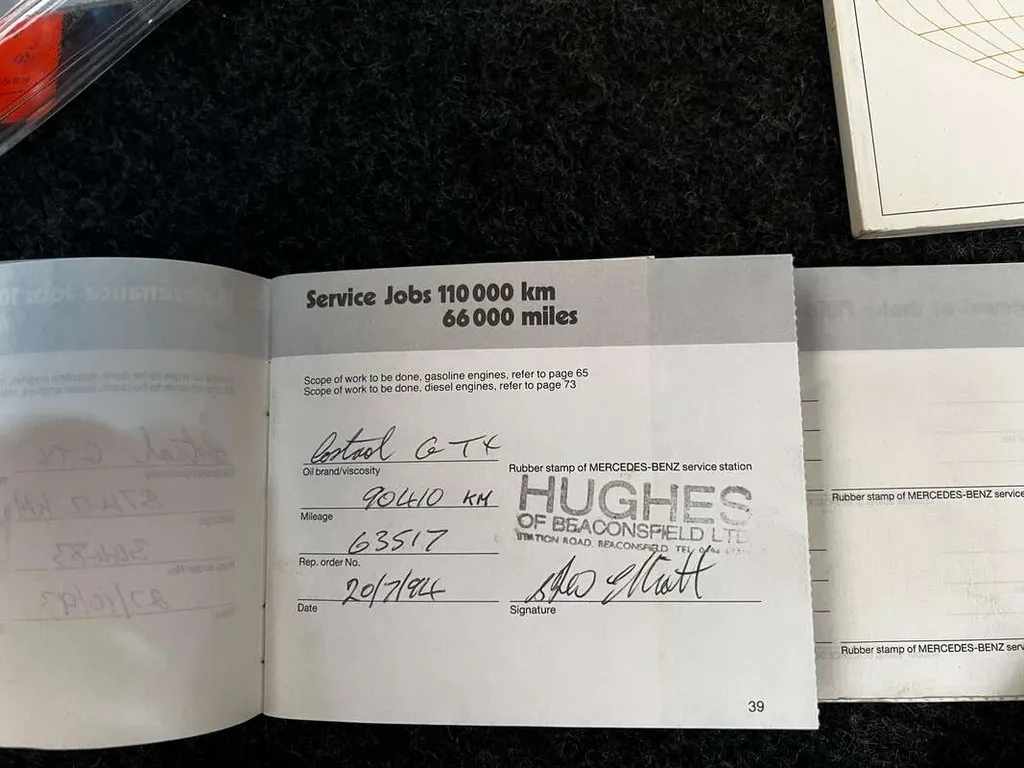 Service Jobs 110 000 km
66 000 miles
Scope of work to be done, gasoline engines, refer to page 65
Scope of work to be done, diesel engines, refer to page 73
Castrol GTX
Oil brand/viscosity
90410 KM
Mileage
63517
Rep. order No.
20/7/94
Date
Rubber stamp of MERCEDES-BENZ service station
HUGHES
OF BEACONSFIELD LTD
STATION ROAD, BEACONSFIELD TEL
Elliott
Signature
39
Rubber stamp of MERCEDES-BENZ service
Rubber stamp of MERCEDES-BENZ serv